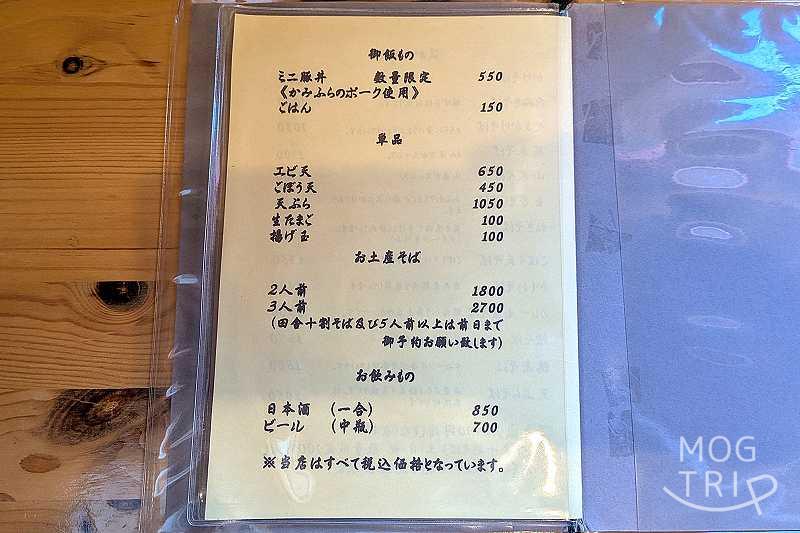 御飯もの
ミニ豚丼 数量限定 550
《かみふらのポーク使用》
ごはん 150
単品
エビ天 650
ごぼう天 450
天ぷら 1050
生たまご 100
揚げ玉 100
お土産そば
2人前 1800
3人前 2700
(田舎十割そば及び5人前以上は前日まで
御予約お願い致します)
お飲みもの
日本酒 (一合) 850
ビール (中瓶) 700
※当店はすべて税込価格となっています。
MOG
TRIP